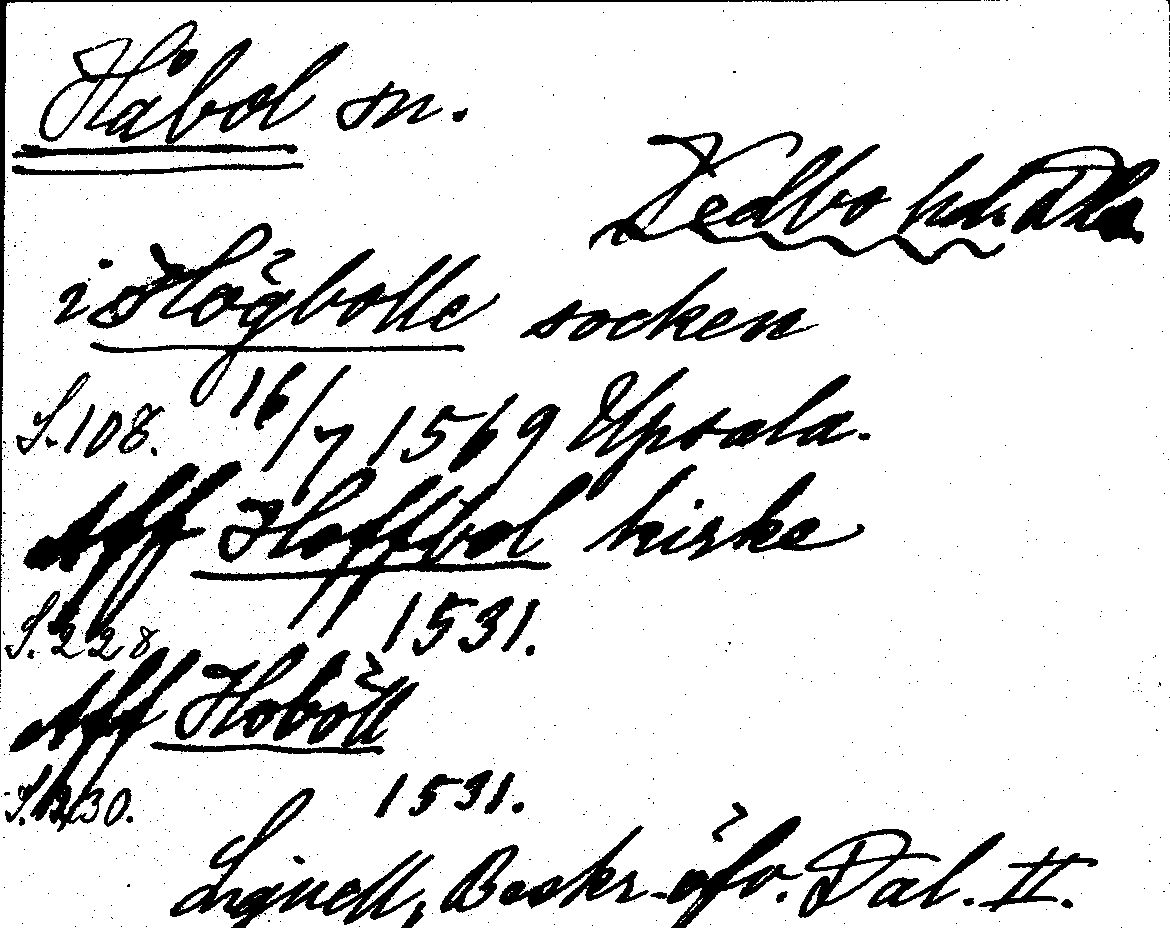 Håbol sn.
Vedbo hd. Dls.
i Högbolle socken
S. 108. 16/7 1569 Upsala.
Aff Hoffbol kirke
S. 228 1531.
Aff Hoböll
S. 230. 1531.
Lignell, Beskr. öfv. Dal. II.